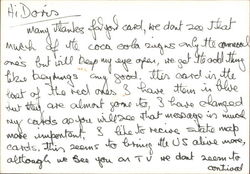 Hi Doris
Many thanks for your card, we dont see that
much of the coca cola signs only the commercial
ones but will keep my eye open, we get the odd thing
like beermats any good. This card is the
last of the red ones I have them in blue
but they are almost gone to, I have changed
my cards as you will see that message is much
more important. I like to recive state map
cards, this seems to bring the US alive more,
although we see you on TV we dont seem to
contiued